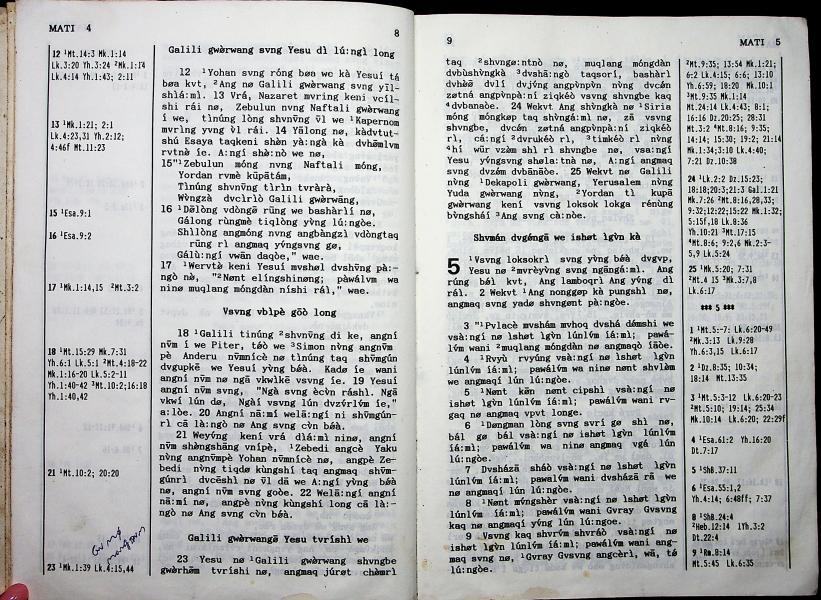 MATI 4
8
12 ¹Mt.14:3 Mk.1:14
Lk.3:20 Yh.3:24 ²Mk.1:14
Lk.4:14 Yh.1:43; 2:11
13 ¹Mk.1:21; 2:1
Lk.4:23,31 Yh.2:12;
4:46f Mt.11:23
15 ¹Esa.9:1
16 ¹Esa.9:2
17 ¹Mk.1:14,15 ²Mt.3:2
18 ¹Mt.15:29 Mk.7:31
Yh.6:1 Lk.5:1 ²Mt.4:18-22
Mk.1:16-20 Lk.5:2-11
Yh.1:40-42 ³Mt.10:2;16:18
Yh.1:40,42
21 ¹Mt.10:2; 20:20
23 ¹Mk.1:39 Lk.4:15,44
Galili gwèrwang svng Yesu dì lú:ngì long
12 ¹Yohan svng róng bøa we kà Yesuí tá
bøa kvt, ²Ang nø Galili gwèrwang svng yīl-
shìá:mì. 13 Vrá, Nazaret mvring keni vcíl-
shì rái nø, Zebulun nvng Naftali gwèrwang
í we, tìnúng lòng shvnv̄ng v̄l we ¹Kapernom
mvrìng yvng v̀l rái. 14 Yālòng nø, kàdvtut-
shú Esaya taqkeni shèn yà:ngà kà dvhēmlvm
rvtnà íe. A:ngí shà:nò we nø,
15"¹Zebulun móng nvng Naftali móng,
Yordan rvmè kūpātám,
Tìnúng shvnv̄ng tìrìn tvràrà,
Wv̀ngzà dvcìrìò Galili gwèrwāng,
16 ¹Dø̄lòng vdòngē rūng we bashàrìí nø,
Gálong rùngmè tìqlòng yv̀ng lú:ngòe.
Shìlòng angmóng nvng angbàngzì vdòngtaq
rūng rì angmaq yv́ngsvng gø,
Gálù:ngí vwān daqòe," wae.
17 ¹Wervtè keni Yesuí mvshøl dvshv̄ng pà:-
ngò nø, "²Nønt elíngshìnøng; pàwálv̀m wa
ninø muqlang móngdàn níshì rál," wae.
Vsvng vblpè gōò long
18 ¹Galili tìnúng ²shvnv̄ng dì ke, angní
nv̄m í we Piter, tøò we ³Simon nv̀ng angnv̄m
pè Anderu nv̄mnícè nø tìnúng taq shv̄mgún
dvgupkē we Yesuí yv̀ng bǿà. Kadø íe wani
angní nv̄m nø ngā vkwìkē vsv̀ng íe. 19 Yesuí
angní nv̄m svng, "Ngà svng ècv̀n ráshì. Ngā
vkwí lún dø, Ngàí vsvng lún dvzv́rlv́m íe,"
a:lòe. 20 Angní nā:mí welā:ngí ni shv̄mgún-
rì cā là:ngò nø Ang svng cv̀n bǿà.
21 Weyv́ng kení vrá dlá:mì ninø, angní
nv̄m shøngshāng vnípè, ¹Zebedi angcè Yaku
nv̀ng angnv̄mpè Yohan nv̄mnícè nø, angpè Ze-
bedi nv̀ng tìqdø kùngshí taq angmaq shv̄m-
gúnrì dvcēshì nø v̄l dā we A:ngí yv̀ng bǿà
nø, angní nv̄m svng goòe. 22 Welā:ngí angní
nā:mí nø, angpè nv̀ng kùngshí long cā là:-
ngò nø Ang svng cv̀n bǿà.
Galili gwèrwangē Yesu tvríshì we
23 Yesu nø ¹Galili gwèrwang shvngbe
gwèrhēm tvríshì nø, angmaq júrøt chømrì
9
MATI 5
taq ²shvngø:ntnò nø, muqlang móngdàn
dvbùshv̀ngkà ³dvshā:ngò taqsorí, bashàrì
dvhø̄ē dvlí dvjv́ng angpv̀npv̀n nv̀ng dvcán
zøtná angpv̀npà:ní zíqkēò vsvng shvngbe kaq
⁴dvbanàòe. 24 Wekvt Ang shv̀ngkà nø ¹Siria
móng móngkøp taq shv̀ngá:mì nø, zā vsvng
shvngbe, dvcán zøtná angpv̀npà:ní zíqkēò
rì, cá:ngí ²dvrukēò rì, ³tìmkēò rì nv̀ng
⁴hí wūr vzàm shì rì shvngbe nø, vsa:ngí
Yesu yv́ngsvng shøla:tnà nø, A:ngí angmaq
svng dvzǿm dvbānāòe. 25 Wekvt nø Galili
nv̀ng ¹Dekapoli gwèrwang, Yerusalem nv̀ng
Yuda gwèrwang nv̀ng, ²Yordan tì kupā
gwèrwang kení vsvng loksok lokga rénùng
bv̀ngshàí ³Ang svng cà:nòe.
Shvmán dvgéngā we ishøt lgv̀n kà
5 ¹Vsvng loksokrì svng yv̀ng bǿà dvgvp,
Yesu nø ²mvrèyv̀ng svng ngāngá:mì. Ang
rúng bǿì kvt, Ang lamboqrì Ang yv́ng dì
rál. 2 Wekvt ¹Ang nønggøp kà pungshì nø,
angmaq svng yadø shvngønt pà:ngòe.
3 "¹Pvlacè mvshám mvhoq dvshá dǿmshì we
vsà:ngí nø ìshøt lgv̀n lúnlv́m íá:mì; pawá-
lv́m wani ²muqlang móngdàn nø angmaqòí íāòe.
4 ¹Rvyù rvyúng vsà:ngí nø ìshøt lgv̀n
lúnlv́m íá:mì; pàwálv́m wa ninø nønt shvlǿm
we angmaqí lún lú:ngòe.
5 ¹Nønt kēn nønt cìpshì vsà:ngí nø
ìshøt lgv̀n lúnlv́m íá:mì; pawálv́m wani rv-
gaq nø angmaq vpvt longe.
6 ¹Døngman lòng svng svrí gø shì nø,
bǿl gø bǿl vsà:ngí nø ìshøt lgv̀n lúnlv́m
íá:mì; pawálv́m wa ninø angmaq vgá lún
lú:ngòe.
7 Dvsházā sháò vsà:ngí nø ìshøt lgv̀n
lúnlv́m íá:mì; pawalv́m wani dvsházā rā we
nø angmaqí lún lú:ngòe.
8 ¹Nønt mv́ngshèr vsà:ngí nø ìshøt lgv̀n
lúnlv́m íá:mì; pawálv́m wani Gvray Gvsvng
kaq nø angmaqí yv́ng lún lú:ngoe.
9 Vsvng kaq shvrv́m shvráò vsà:ngí nø
ìshøt lgv̀n lúnlv́m íá:mì; pawálv́m wani ang-
maq svng nø, ¹Gvray Gvsvng angcèrì, wā, tø
lú:ngòe.
²Mt.9:35; 13:54 Mk.1:21;
6:2 Lk.4:15; 6:6; 13:10
Yh.6:59; 18:20 Mk.10:1
³Mt.9:35 Mk.1:14
Mt.24:14 Lk.4:43; 8:1;
16:16 Dz.20:25; 28:31
Mt.3:2 ⁴Mt.8:16; 9:35;
14:14; 15:30; 19:2; 21:14
Mk.1:34;3:10 Lk.4:40;
7:21 Dz.10:38
24 ¹Lk.2:2 Dz.15:23;
18:18;20:3;21:3 Gal.1:21
Mk.7:26 ²Mt.8:16,28,33;
9:32;12:22;15:22 Mk.1:32;
5:15f,18 Lk.8:36
Yh.10:21 ³Mt.17:15
⁴Mt.8:6; 9:2,6 Mk.2:3-
5,9 Lk.5:24
25 ¹Mk.5:20; 7:31
²Mt.4 15 ³Mk.3:7,8
Lk.6:17
*** 5 ***
1 ¹Mt.5:-7: Lk.6:20-49
²Mk.3:13 Lk.9:28
Yh.6:3,15 Lk.6:17
2 ¹Dz.8:35; 10:34;
18:14 Mt.13:35
3 ¹Mt.5:3-12 Lk.6:20-23
²Mt.5:10; 19:14; 25:34
Mk.10:14 Lk.6:20; 22:29f
4 ¹Esa.61:2 Yh.16:20
Dt.7:17
5 ¹Sh8.37:11
6 ¹Esa.55:1,2
Yh.4:14; 6:48ff; 7:37
8 ¹Sh8.24:4
²Heb.12:14 1Yh.3:2
Dt.22:4
9 ¹Rm.8:14
Mt.5:45 Lk.6:35